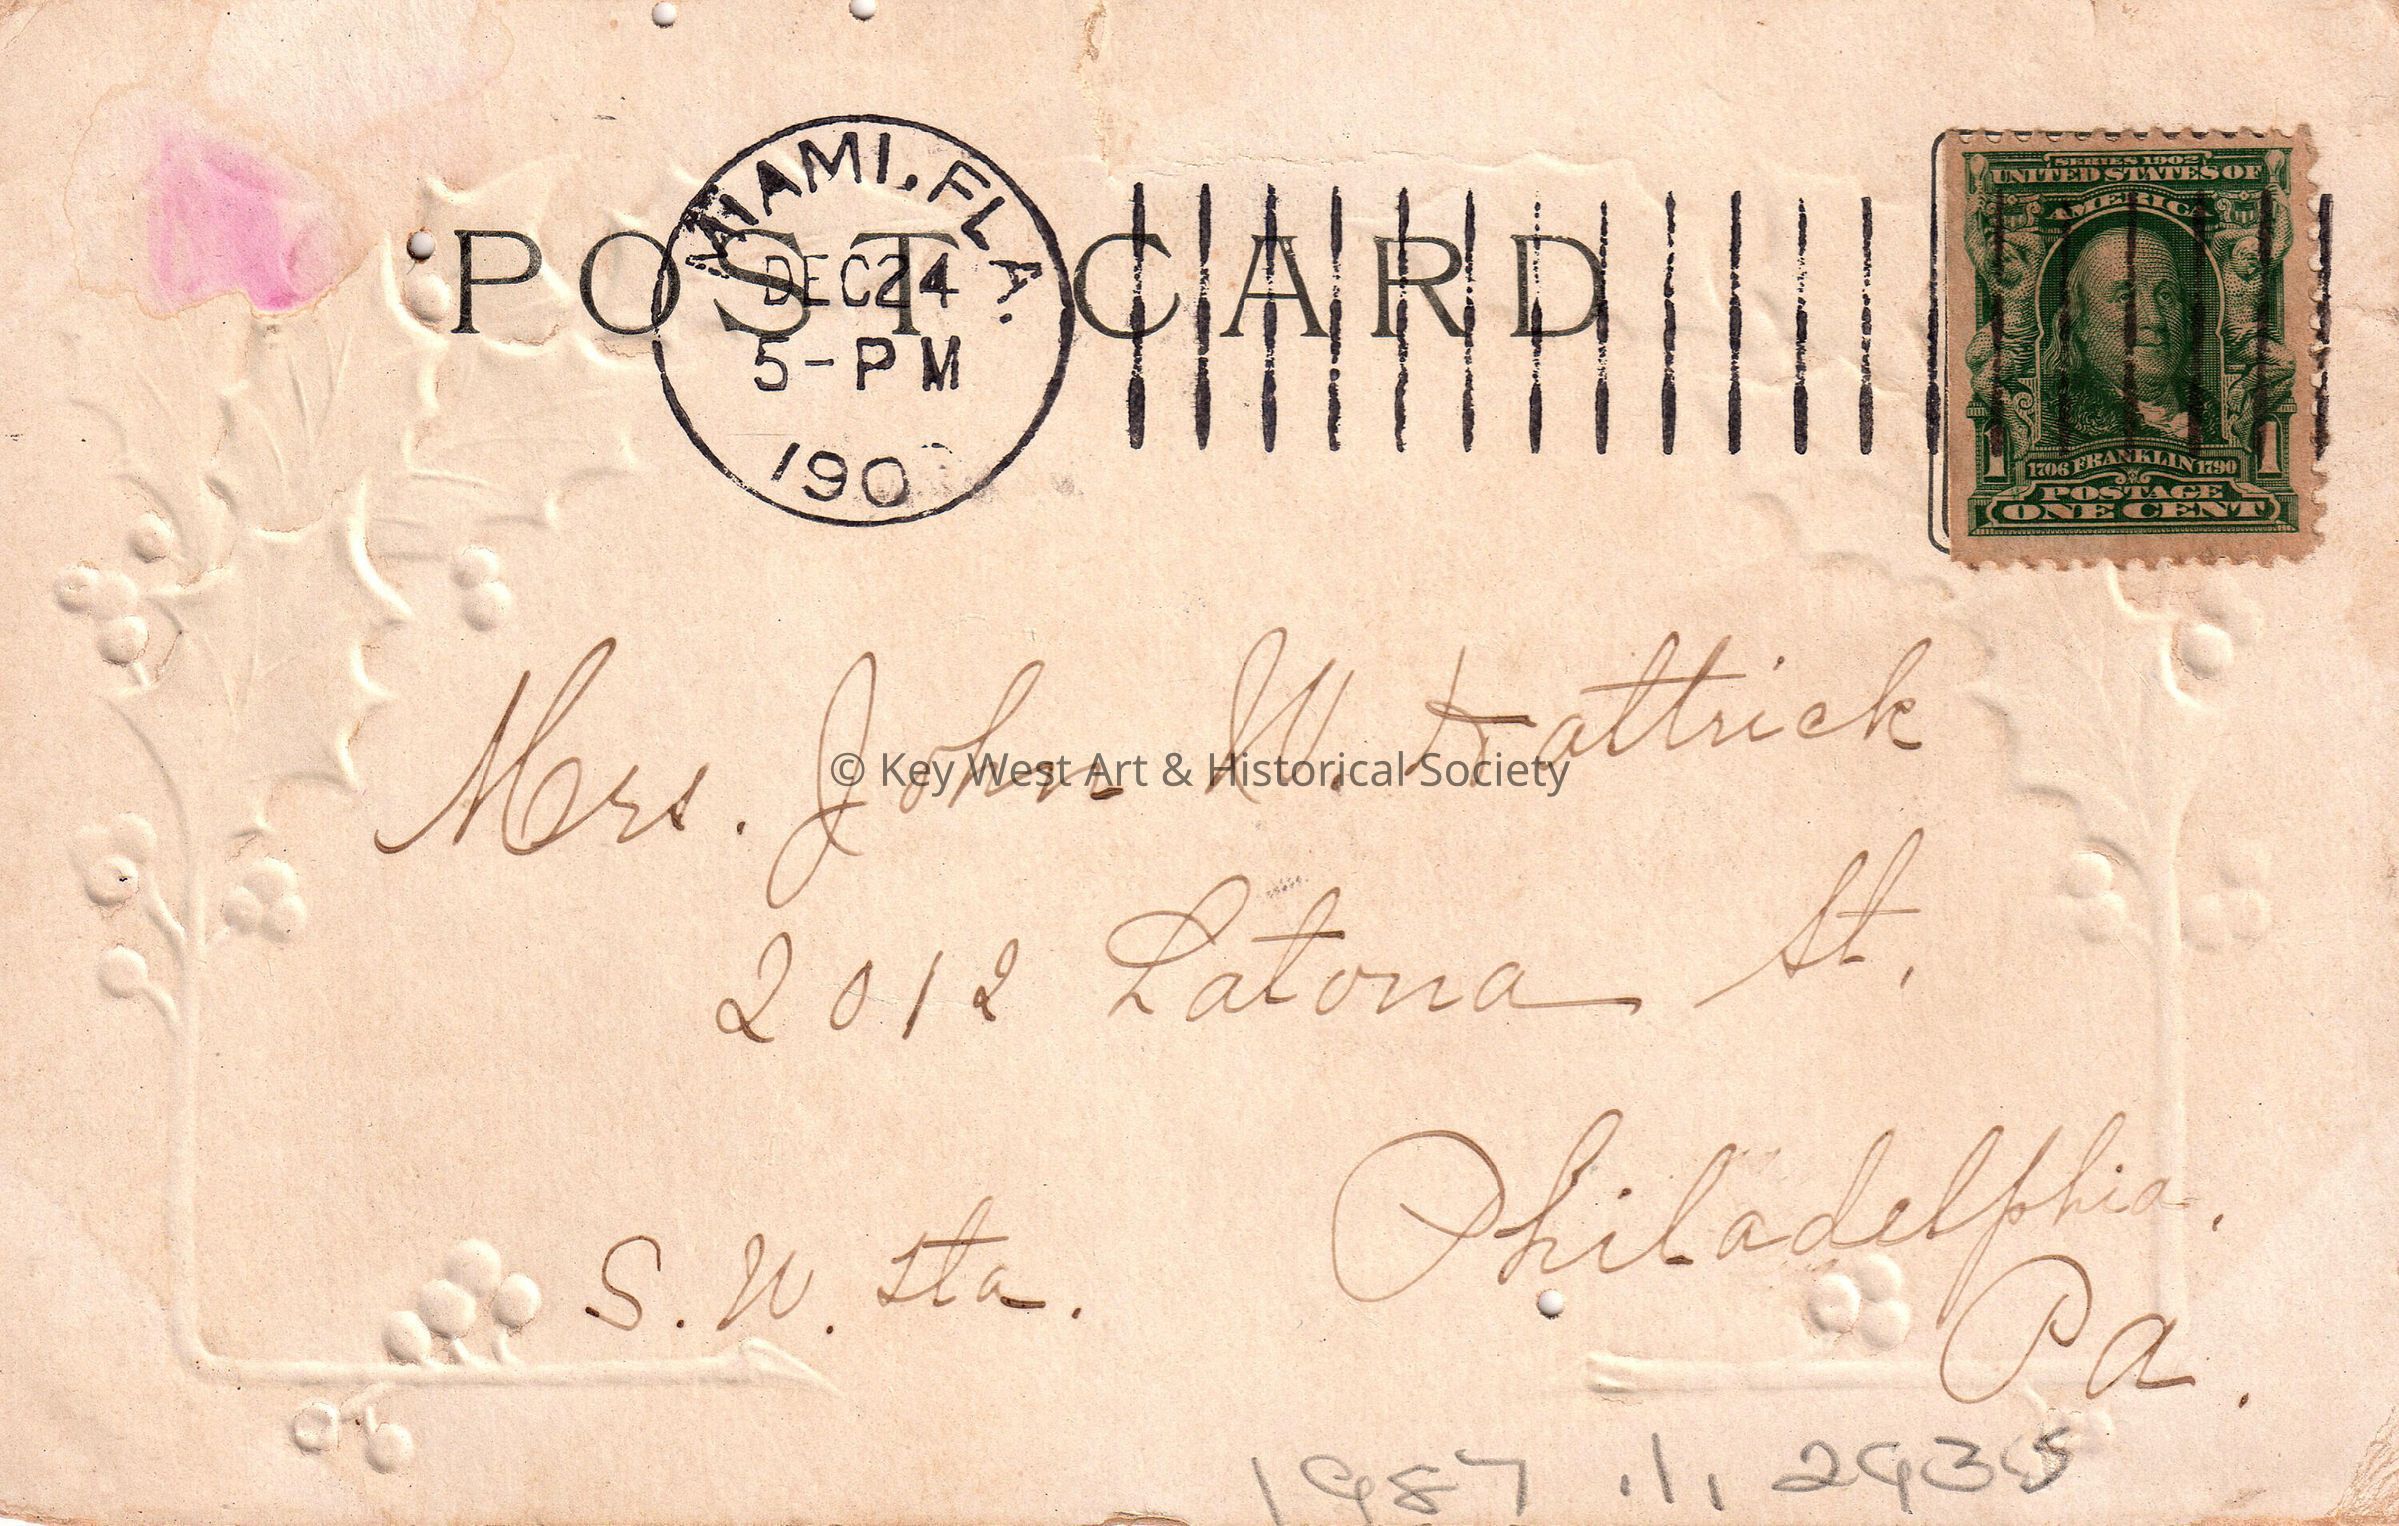 POST CARD
MIAMI, FLA.
DEC 24
5-PM
190
SERIES 1902
UNITED STATES OF
AMERICA
1 1706 FRANKLIN 1790 1
POSTAGE
ONE CENT
Mrs. John W. Kattrick
© Key West Art & Historical Society
2012 Latona St.
Philadelphia.
S. W. Sta.
Pa.
1987 .1.